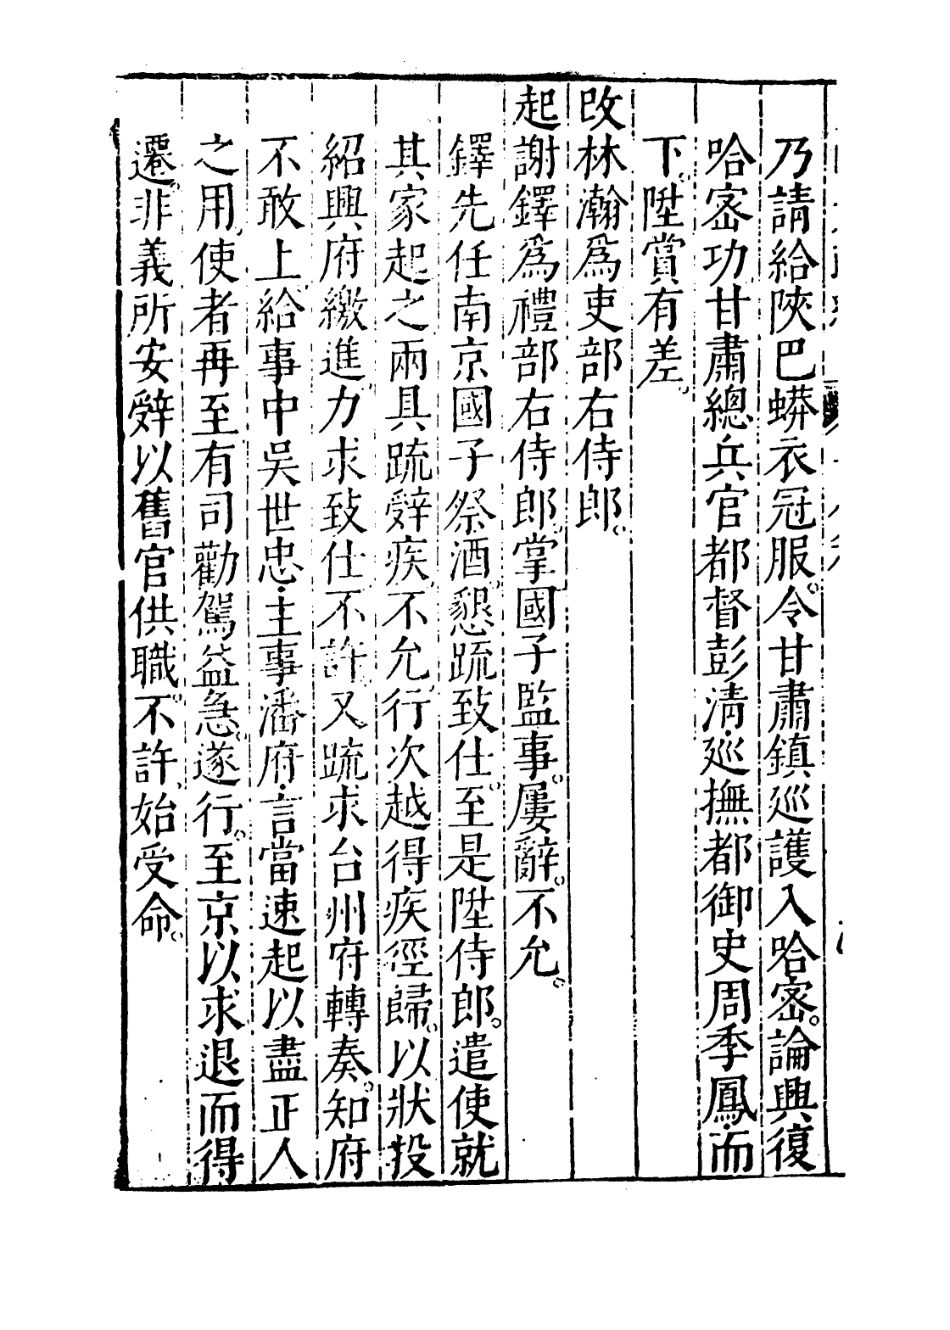 乃請給陝巴蟒衣冠服。令甘肅鎮廵護入哈宻。論興復
哈宻功。甘肅總兵官都督彭淸廵撫都御史周季鳳而
下。陞賞有差。
改林瀚爲吏部右侍郎。
起謝鐸爲禮部右侍郎。掌國子監事。屢辭。不允。
鐸先任南京國子祭酒。懇疏致仕。至是陞侍郎。遣使就
其家起之。兩具疏辤疾。不允。行次越得疾徑歸。以狀投
紹興府繳進。力求致仕。不許。又疏求台州府轉奏。知府
不敢上。給事中吳世忠主事潘府言當速起以盡正人
之用。使者再至。有司勸駕益急。遂行。至京以求退而得
遷。非義所安。辤以舊官供職。不許。始受命。